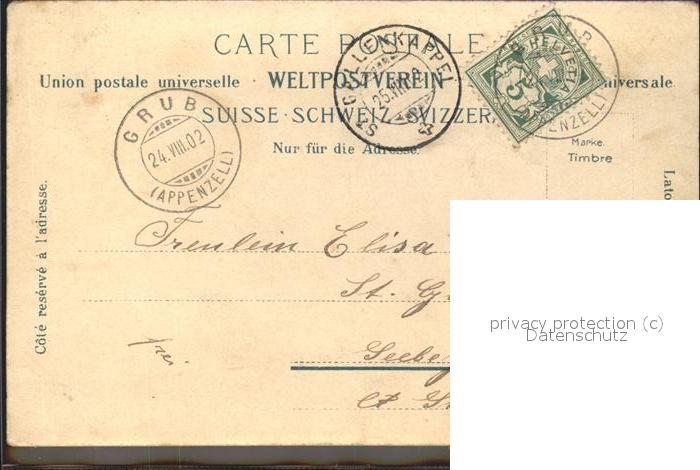 CARTE POSTALE
Union postale universelle · WELTPOSTVEREIN · universale
SUISSE · SCHWEIZ · SVIZZERA
Nur für die Adresse.
GRUB
24.VIII.02
(APPENZELL)
ST. GALLENKAPPEL
25.VIII.02
HELVETIA
5
APPENZELL)
Marke.
Timbre
Côté resérvé à l'adresse.
Lato
Freulein Elisa
St. G
frei
privacy protection (c)
Datenschutz